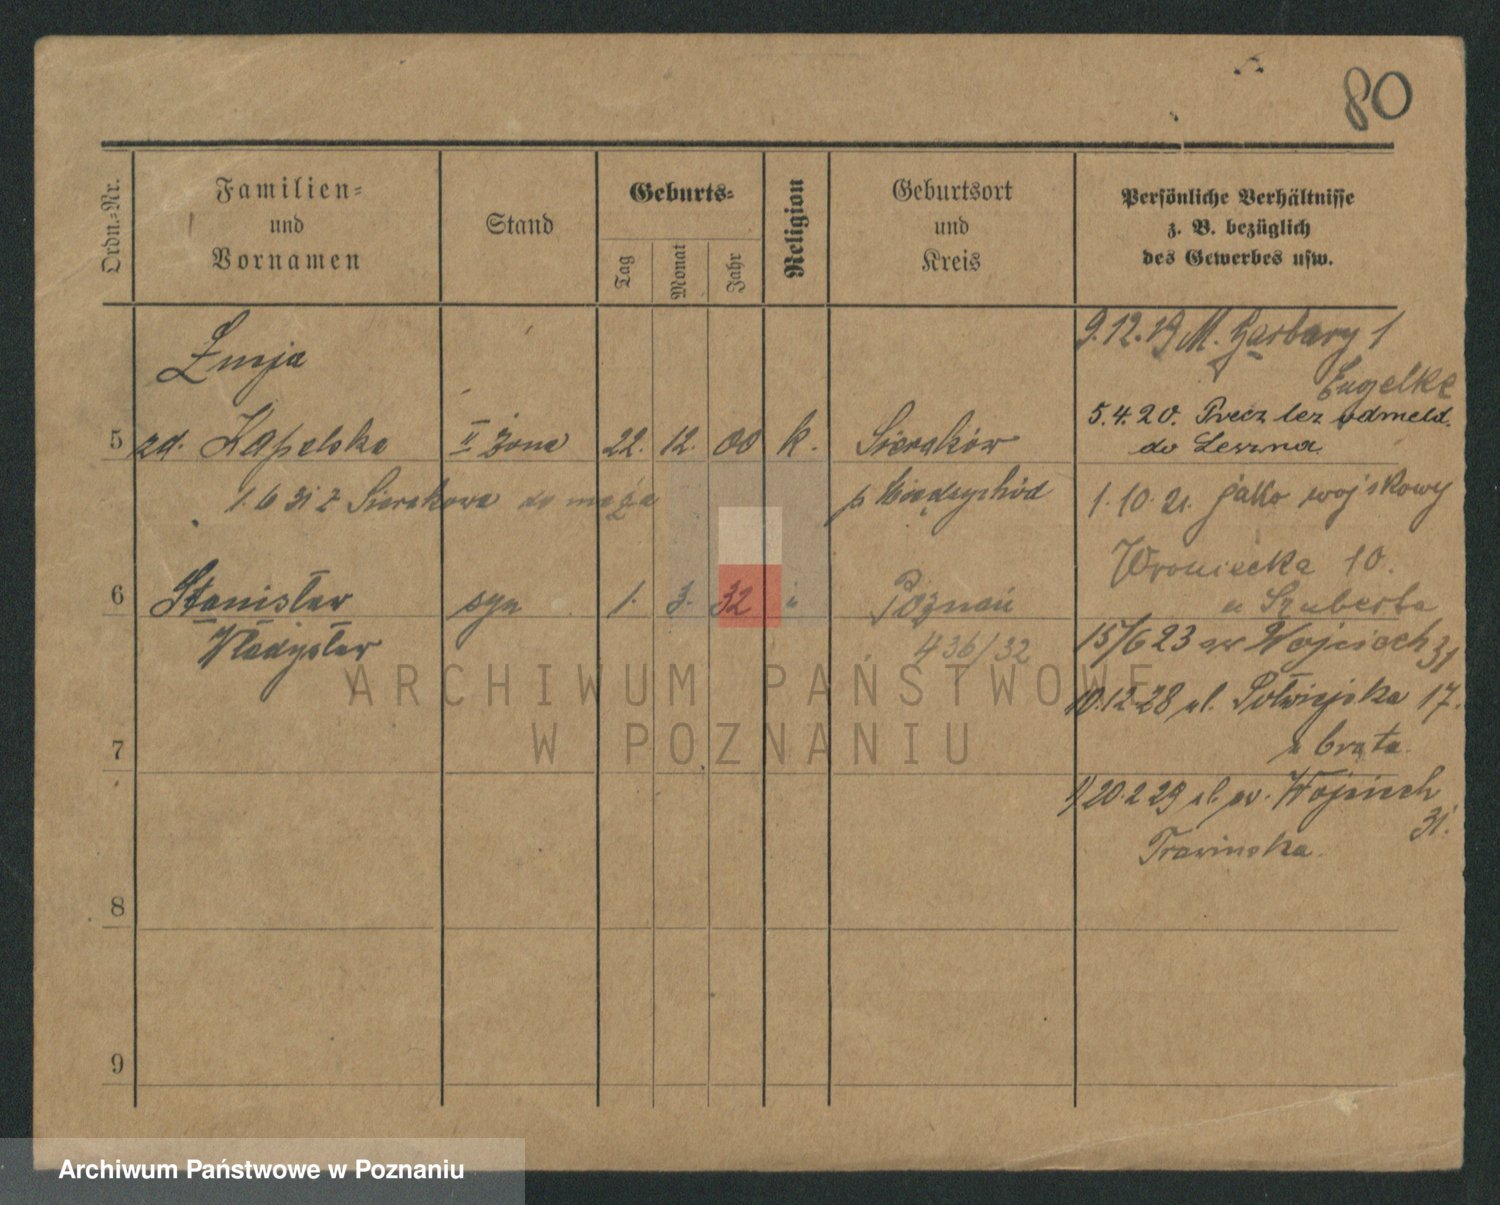 80
Ordn.=Nr.
Familien=
und
Vornamen
Stand
Geburts=
Tag
Monat
Jahr
Religion
Geburtsort
und
Kreis
Persönliche Verhältnisse
z. B. bezüglich
des Gewerbes usw.
9.12.19 M. Garbary 1
Engelke
5.4.20. Precz bez odmeld.
do Leszna
1.10.21. jako wojskowy
Wroniecka 10.
u Szuberta
15/6 23 św Wojciech 31
10.12.28 ul. Półwiejska 17.
u brata.
20.2 29 ul. św. Wojciech
31.
5 zd. Kapelska II żona 22. 12. 00 k. Sieraków
1.6 31 z Sierakowa do męża p Międzychód
6 Stanisław syn 1. 3. 32 " Poznań
Władysław 436/32
7
8
9
ARCHIWUM PAŃSTWOWE
W POZNANIU
Archiwum Państwowe w Poznaniu